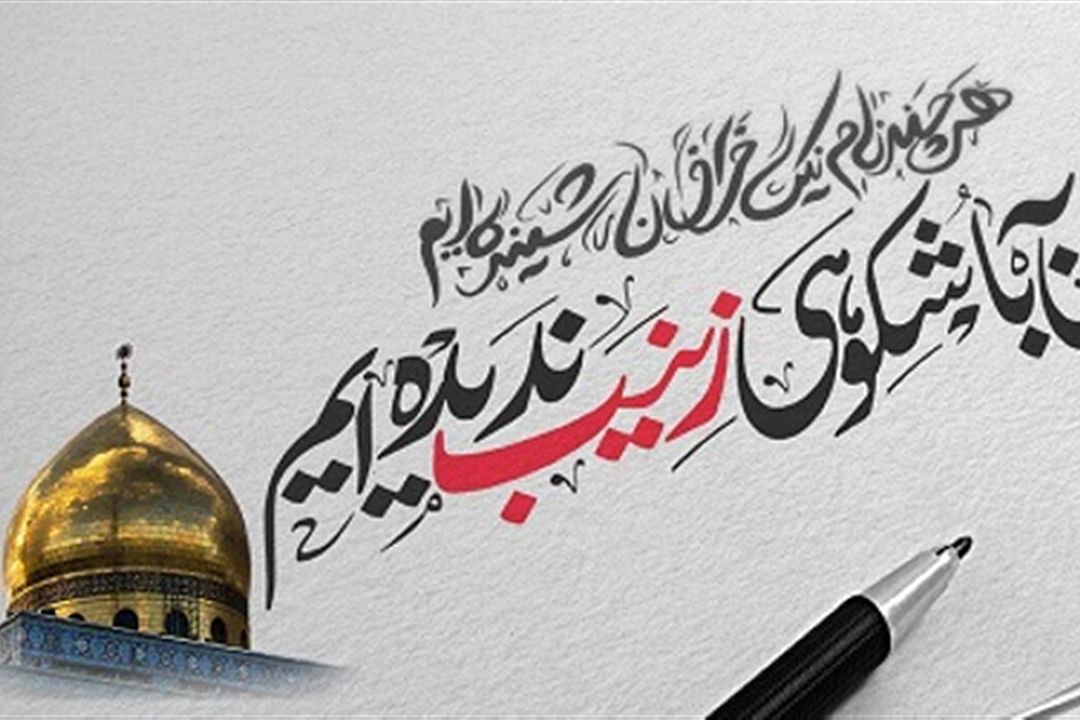 هر چند نام نیک فراوان شنیده ایم
با شکوهی زینب ندیده ایم